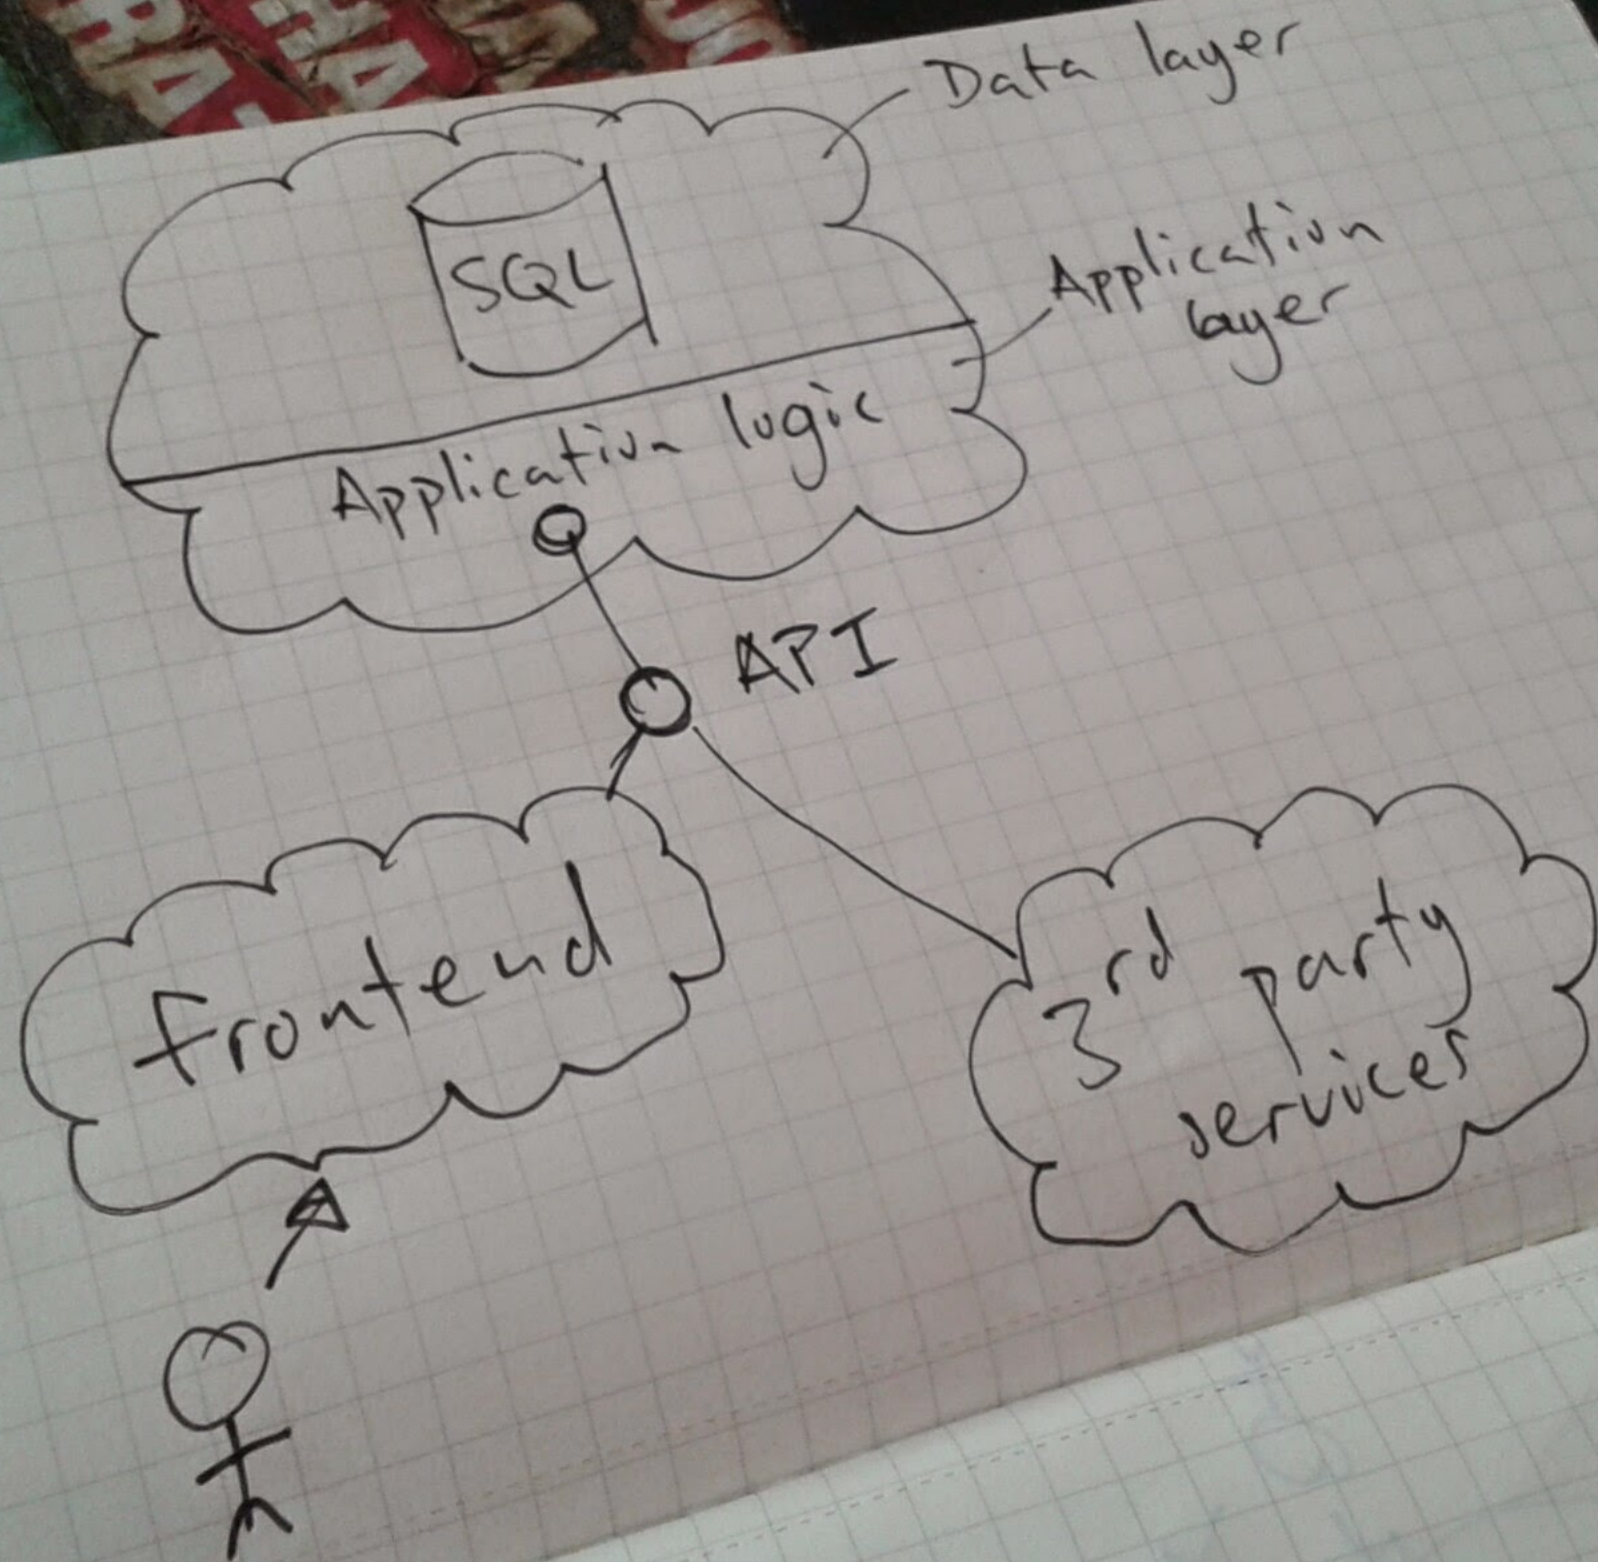 Data layer
SQL
Application
layer
Application logic
API
frontend
3rd party
services